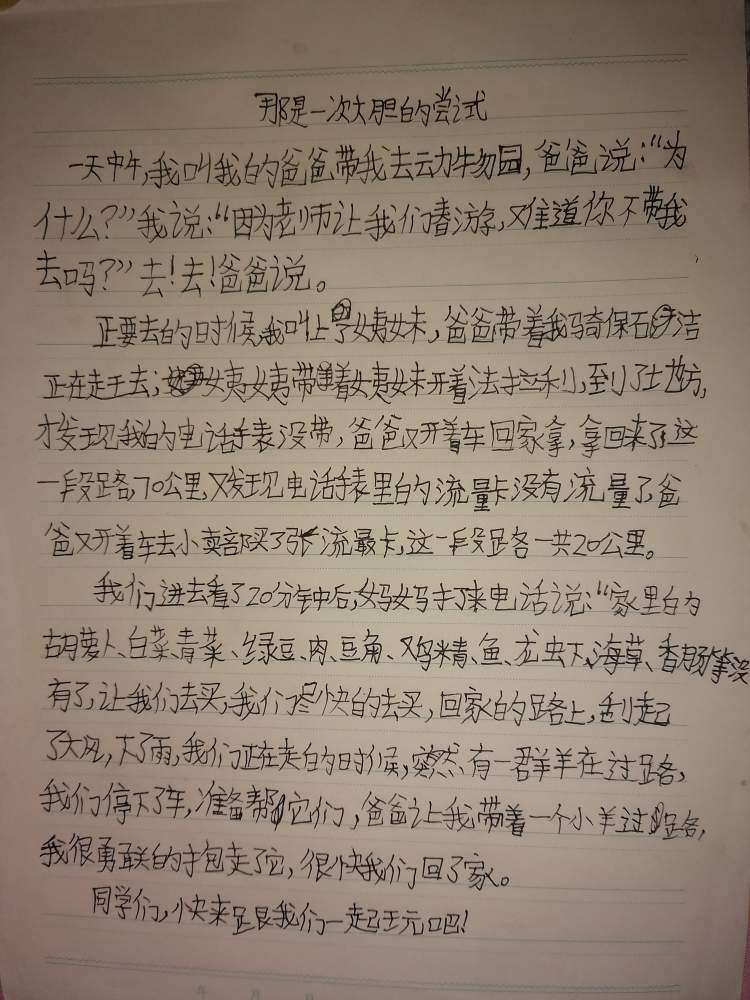 那是一次大胆的尝试
一天中午,我叫我的爸爸带我去动物园,爸爸说:“为
什么?”我说:“因为老师让我们春游,难道你不带我
去吗?”去!去!爸爸说。
正要去的时候,我叫上了姨妹,爸爸带着我骑保石洁
正在走王去;姨姨带着姨妹开着法拉利,到了地方,
才发现我的电话手表没带,爸爸又开着车回家拿,拿回来了这
一段路,70公里,又发现电话手表里的流量卡没有流量了,爸
爸又开着车去小卖部买了张流量卡,这一段路一共20公里。
我们进去看了20分钟后,妈妈打了来电话说:“家里的
胡萝卜、白菜、青菜、绿豆、肉、豆角、鸡精、鱼、龙虫下、海草、香肠等没
有了,让我们去买,我们尽快的去买,回家的路上,刮起
了大风,下了雨,我们正在走的时候,突然,有一群羊在过路,
我们停下了车,准备帮它们,爸爸让我带着一个小羊过路,
我很勇敢的抱走了它,很快我们回了家。
同学们,快来跟我们一起玩吧!